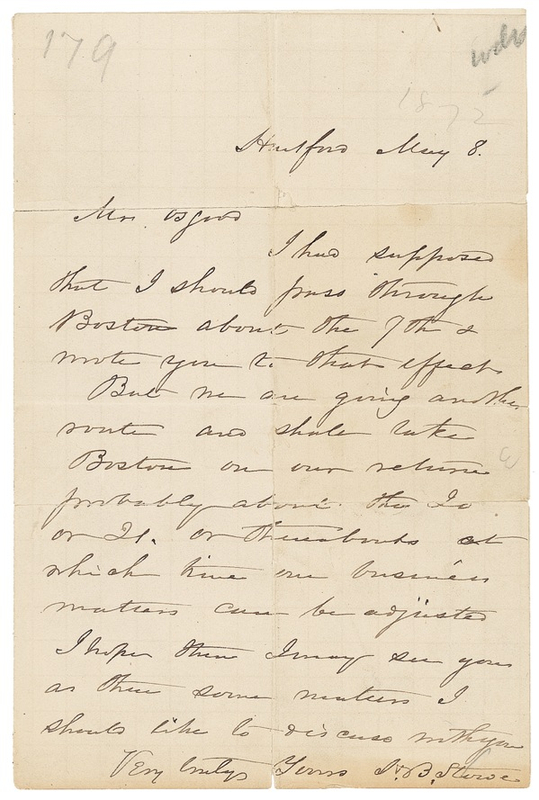 179
1872
Hartford May 8.
Mr. Osgood
I had supposed
that I should pass through
Boston about the 7th &
wrote you to that effect
But we are going another
route and shall take
Boston on our return
probably about the 20
or 21. or thereabouts at
which time our business
matters can be adjusted
I hope then I may see you
as there some matters I
should like to discuss with you
Very truly Yours H. B. Stowe